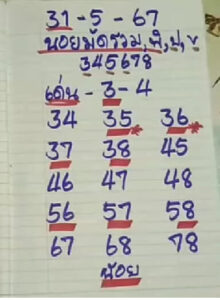 31-5-67
น้อยมัดรวม, พี่, ป, ข
345678
เด่น-3-4
34 35 36
37 38 45
46 47 48
56 57 58
67 68 78
น้อย